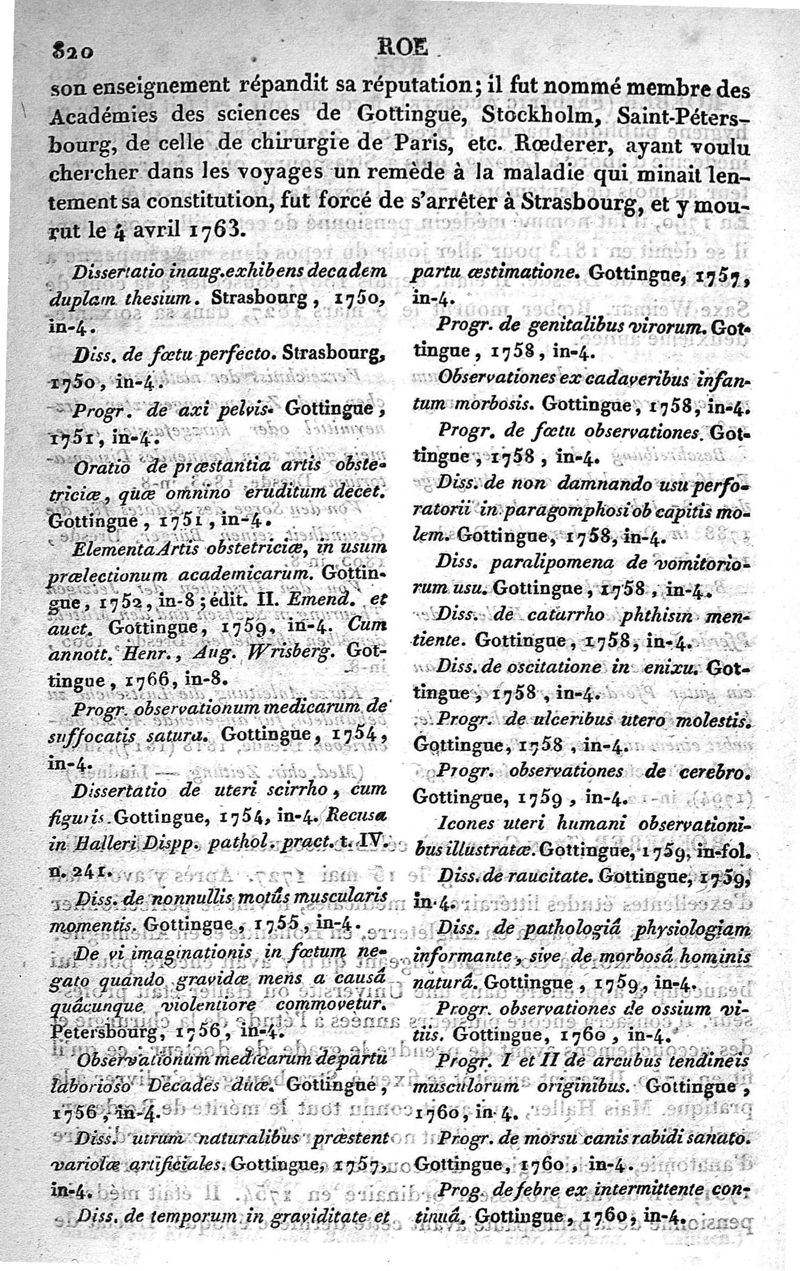 820
ROE
son enseignement répandit sa réputation; il fut nommé membre des
Académies des sciences de Gottingue, Stockholm, Saint-Péters-
bourg, de celle de chirurgie de Paris, etc. Rœderer, ayant voulu
chercher dans les voyages un remède à la maladie qui minait len-
tement sa constitution, fut forcé de s'arrêter à Strasbourg, et y mou-
rut le 4 avril 1763.
Dissertatio inaug. exhibens decadem
duplam thesium. Strasbourg, 1750,
in-4.
Diss. de fœtu perfecto. Strasbourg,
1750, in-4.
Progr. de axi pelvis. Gottingue,
1751, in-4.
Oratio de præstantia artis obste-
triciæ, quæ omnino eruditum decet.
Gottingue, 1751, in-4.
Elementa Artis obstetriciæ, in usum
prælectionum academicarum. Gottin-
gue, 1752, in-8; édit. II. Emend. et
auct. Gottingue, 1759, in-4. Cum
annott. Henr., Aug. Wrisberg. Got-
tingue, 1766, in-8.
Progr. observationum medicarum de
suffocatis satura. Gottingue, 1754,
in-4.
Dissertatio de uteri scirrho, cum
figuris. Gottingue, 1754, in-4. Recusa
in Halleri Dispp. pathol. pract. t. IV.
n. 241.
Diss. de nonnullis motûs muscularis
momentis. Gottingue, 1755, in-4.
De vi imaginationis in fœtum ne-
gato quando gravidæ mens a causâ
quâcunque violentiore commovetur.
Petersbourg, 1756, in-4.
Observationum medicarum de partu
laborioso Decades duæ. Gottingue,
1756, in-4.
Diss. utrum naturalibus præstent
variolæ artificiales. Gottingue, 1757,
in-4.
Diss. de temporum in graviditate et
partu æstimatione. Gottingue, 1757,
in-4.
Progr. de genitalibus virorum. Got-
tingue, 1758, in-4.
Observationes ex cadaveribus infan-
tum morbosis. Gottingue, 1758, in-4.
Progr. de fœtu observationes. Got-
tingue, 1758, in-4.
Diss. de non damnando usu perfo-
ratorii in paragomphosi ob capitis mo-
lem. Gottingue, 1758, in-4.
Diss. paralipomena de vomitorio-
rum usu. Gottingue, 1758, in-4.
Diss. de catarrho phthisin men-
tiente. Gottingue, 1758, in-4.
Diss. de oscitatione in enixu. Got-
tingue, 1758, in-4.
Progr. de ulceribus utero molestis.
Gottingue, 1758, in-4.
Progr. observationes de cerebro.
Gottingue, 1759, in-4.
Icones uteri humani observationi-
bus illustratæ. Gottingue, 1759, in-fol.
Diss. de raucitate. Gottingue, 1759,
in-4.
Diss. de pathologiâ physiologiam
informante, sive de morbosâ hominis
naturâ. Gottingue, 1759, in-4.
Progr. observationes de ossium vi-
tiis. Gottingue, 1760, in-4.
Progr. I et II de arcubus tendineis
musculorum originibus. Gottingue,
1760, in-4.
Progr. de morsu canis rabidi sanato.
Gottingue, 1760, in-4.
Prog. de febre ex intermittente con-
tinuâ. Gottingue, 1760, in-4.